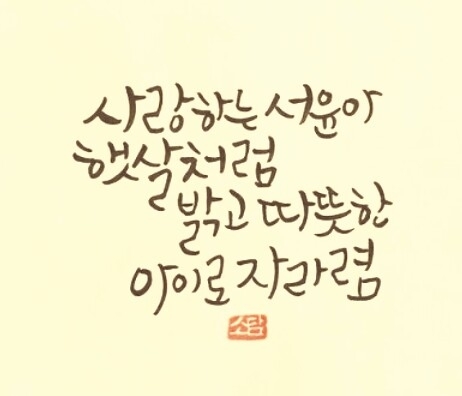 사랑하는 서윤아
햇살처럼
밝고 따뜻한
아이로 자라렴
소담